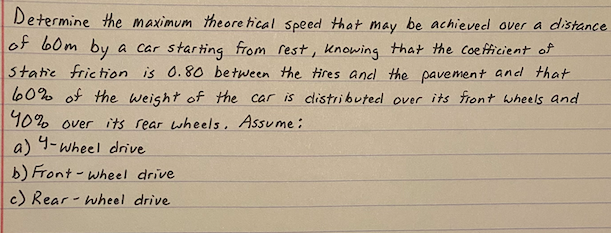 Determine the maximum theoretical speed that may be achieved over a distance
of 60m by a car starting from rest, knowing that the coefficient of
static friction is 0.80 between the tires and the pavement and that
60% of the weight of the car is distributed over its front wheels and
40% over its rear wheels. Assume:
a) 4-wheel drive
b) Front-wheel drive
c) Rear-wheel drive